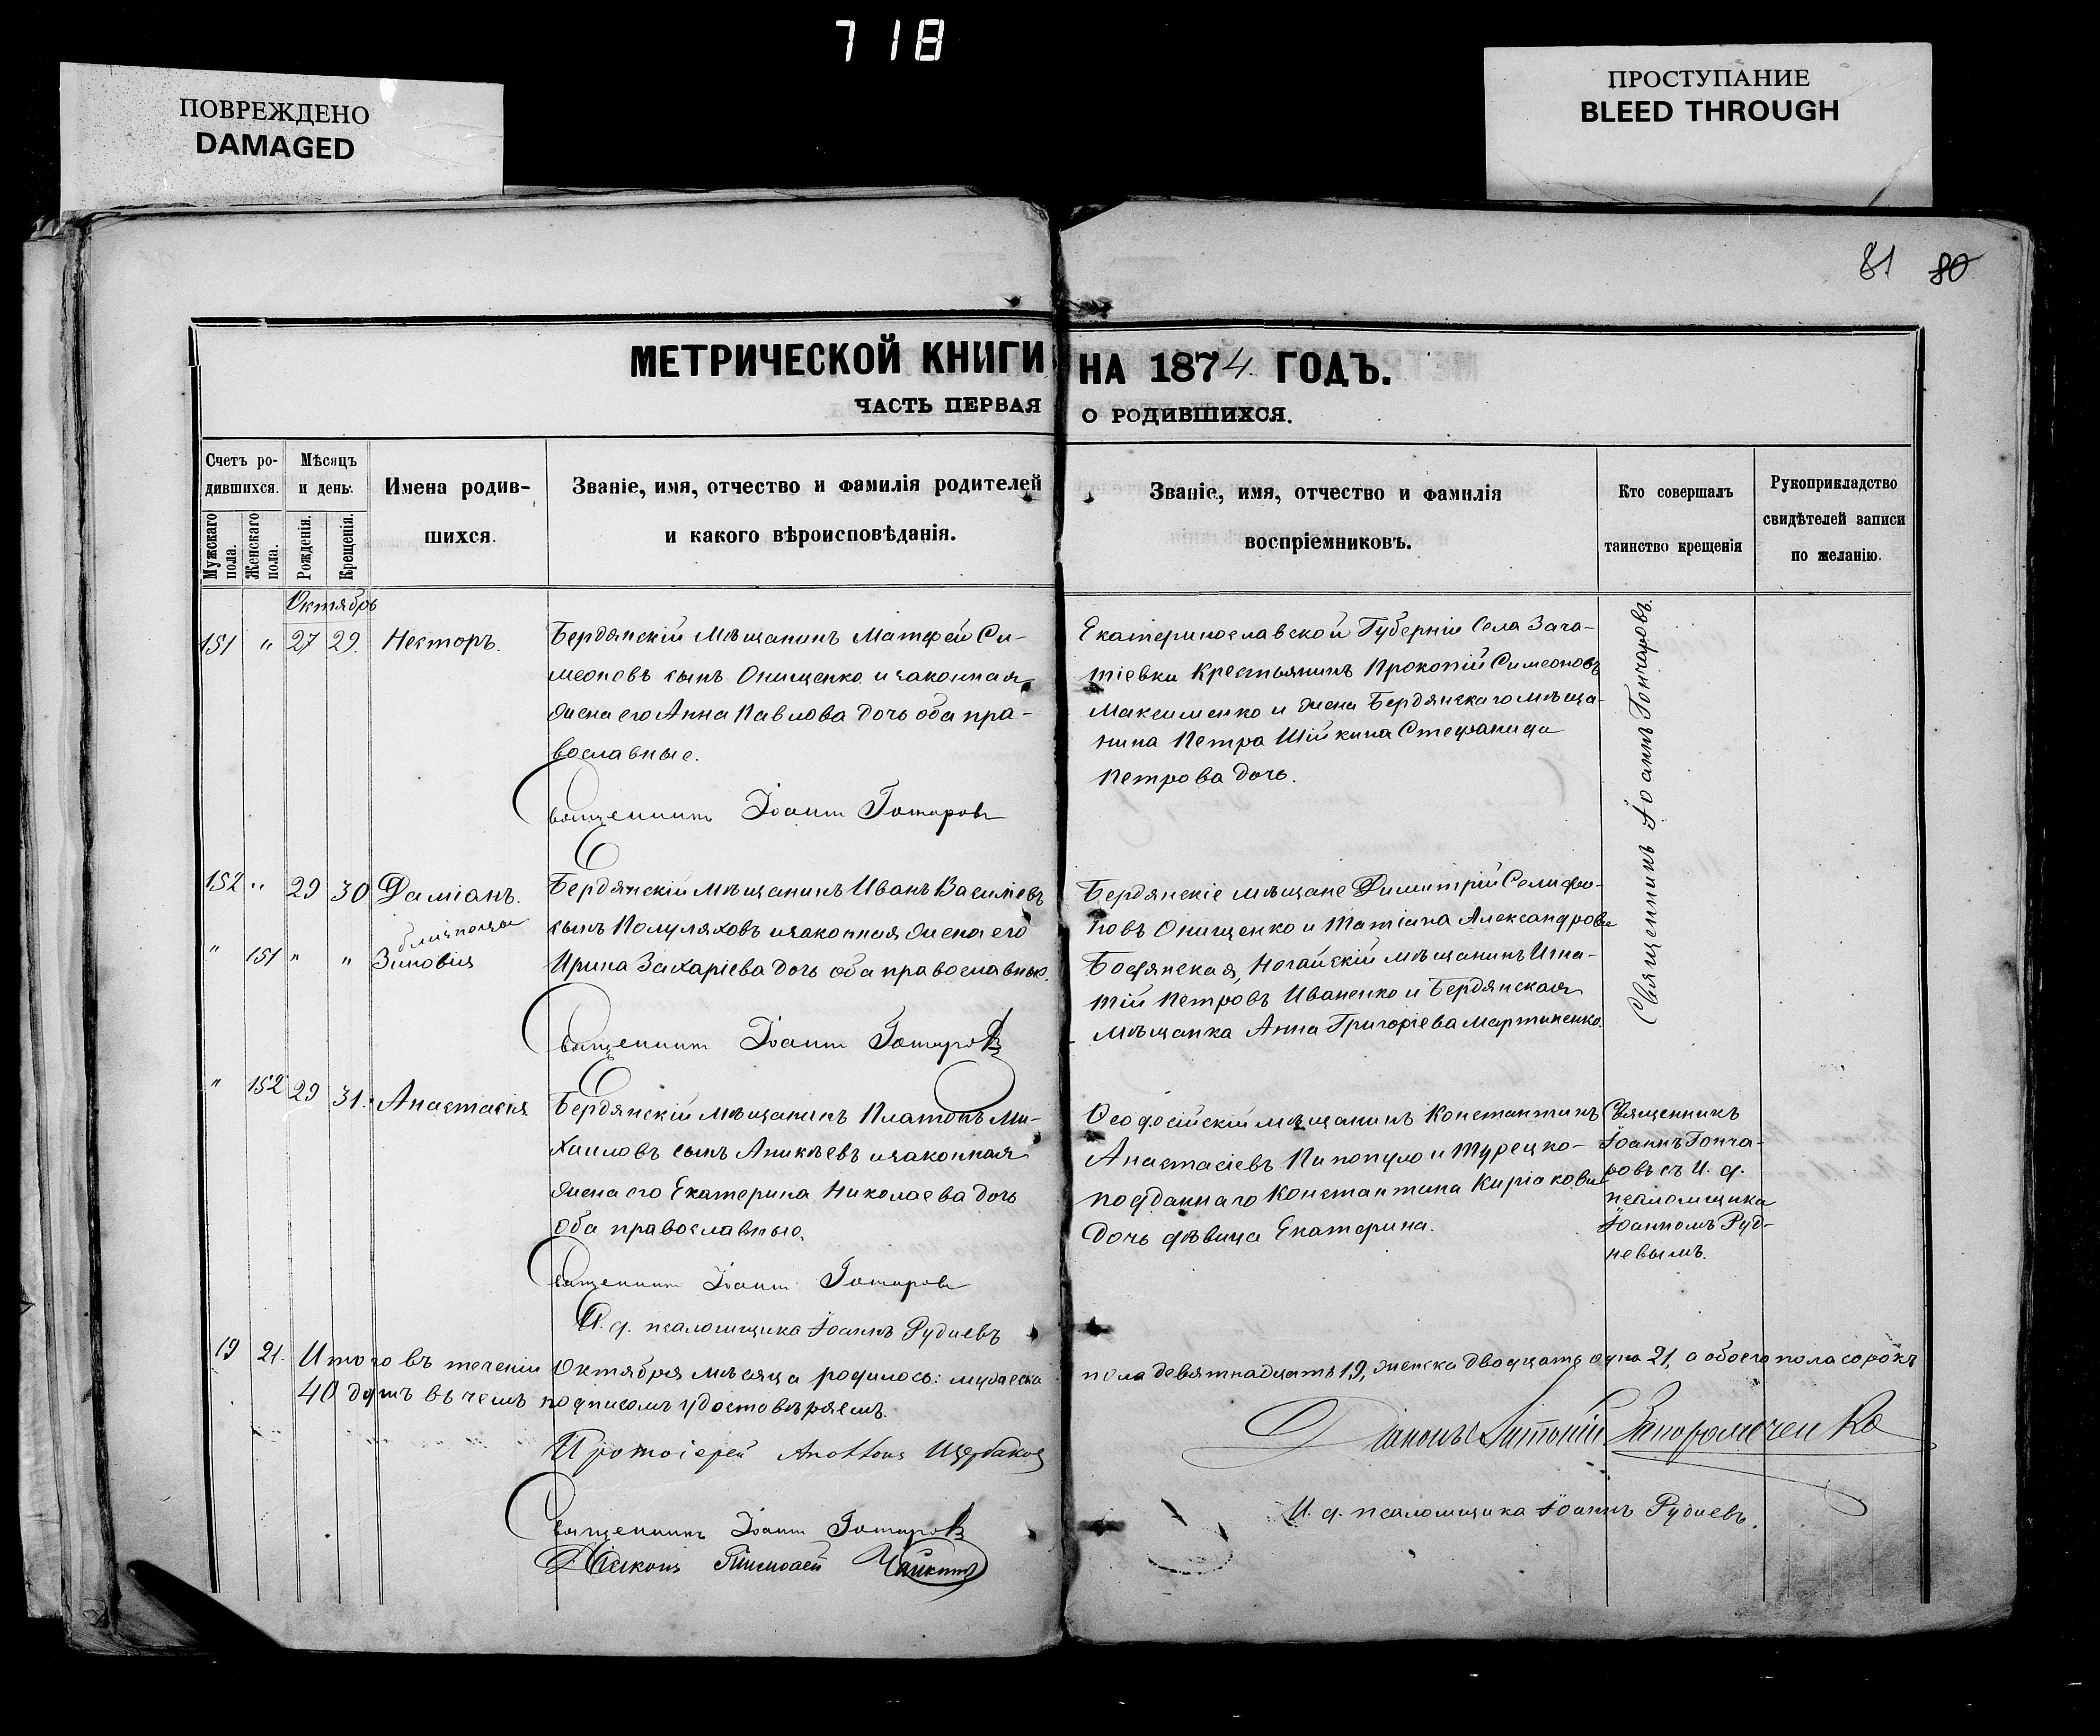 718
ПОВРЕЖДЕНО
DAMAGED
ПРОСТУПАНИЕ
BLEED THROUGH
81 80
МЕТРИЧЕСКОЙ КНИГИ НА 1874. ГОДЪ.
ЧАСТЬ ПЕРВАЯ О РОДИВШИХСЯ.
Счетъ ро-
дившихся.
Мужскаго пола.
Женскаго пола.
Мѣсяцъ
и день.
Рожденія.
Крещенія.
Имена родив-
шихся.
Званіе, имя, отчество и фамилія родителей
и какого вѣроисповѣданія.
Званіе, имя, отчество и фамилія
воспріемниковъ.
Кто совершалъ
таинство крещенія
Рукоприкладство
свидѣтелей записи
по желанію.
Октябрь
151 " 27 29. Несторъ.
Бердянскій Мѣщанинъ Матфей Си-
меоновъ сынъ Онищенко и законная
жена его Анна Павлова дочь оба пра-
вославные.
Священникъ Іоаннъ Гончаровъ
Екатеринославской Губерніи Села Зача-
тіевки Крестьянинъ Прокопій Симеоновъ
Максименко и жена Бердянскаго мѣща-
нина Петра Шійкина Стефанида
Петрова дочь.
Священникъ Іоаннъ Гончаровъ.
152 " 29 30 Даміанъ.
близнецы
" 151 " " Зиновія
Бердянскій Мѣщанинъ Иванъ Васильевъ
сынъ Полуляховъ и законная жена его
Ирина Захаріева дочь оба православные.
Священникъ Іоаннъ Гончаровъ
Бердянскіе мѣщане Димитрій
новъ Онищенко и Татіана Александрова
Ногайскій мѣщанинъ Игна-
тій Петровъ Иваненко и Бердянская
Мѣщанка Анна Григоріева Мартиненко.
" 152 29 31. Анастасія
Бердянскій Мѣщанинъ Платонъ Ми-
хаиловъ сынъ Аникѣевъ и законная
жена его Екатерина Николаева дочь
оба православные.
Священникъ Іоаннъ Гончаровъ
И. д. псаломщика Іоаннъ Рудневъ
Ѳеодосійскій мѣщанинъ Константинъ
Анастасіевъ Пипопуло и Турецко-
подданнаго Константина Киріакова
дочь дѣвица Екатерина.
Священникъ
Іоаннъ Гонча-
ровъ съ И. д.
псаломщика
Іоанномъ Руд-
невымъ.
19 21. Итого въ теченіи Октября мѣсяца родилось: мужеска пола девятнадцать 19, женска двадцать одна 21, а обоего пола сорокъ
40 душъ въ чемъ подписомъ удостовѣряемъ.
Протоіерей Щербаковъ
Діаконъ Антоній
Священникъ Іоаннъ Гончаровъ
И. д. псаломщика Іоаннъ Рудневъ.
Діаконъ Тимоѳей Чайкинъ